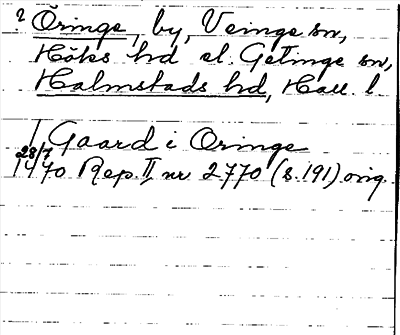 ? Öringe, by, Veinge sn,
Höks hd el. Getinge sn,
Halmstads hd, Hall. l.
1 Gaard i Oringe
28/7
1470 Rep. II, nr 2770 (s. 191) orig.